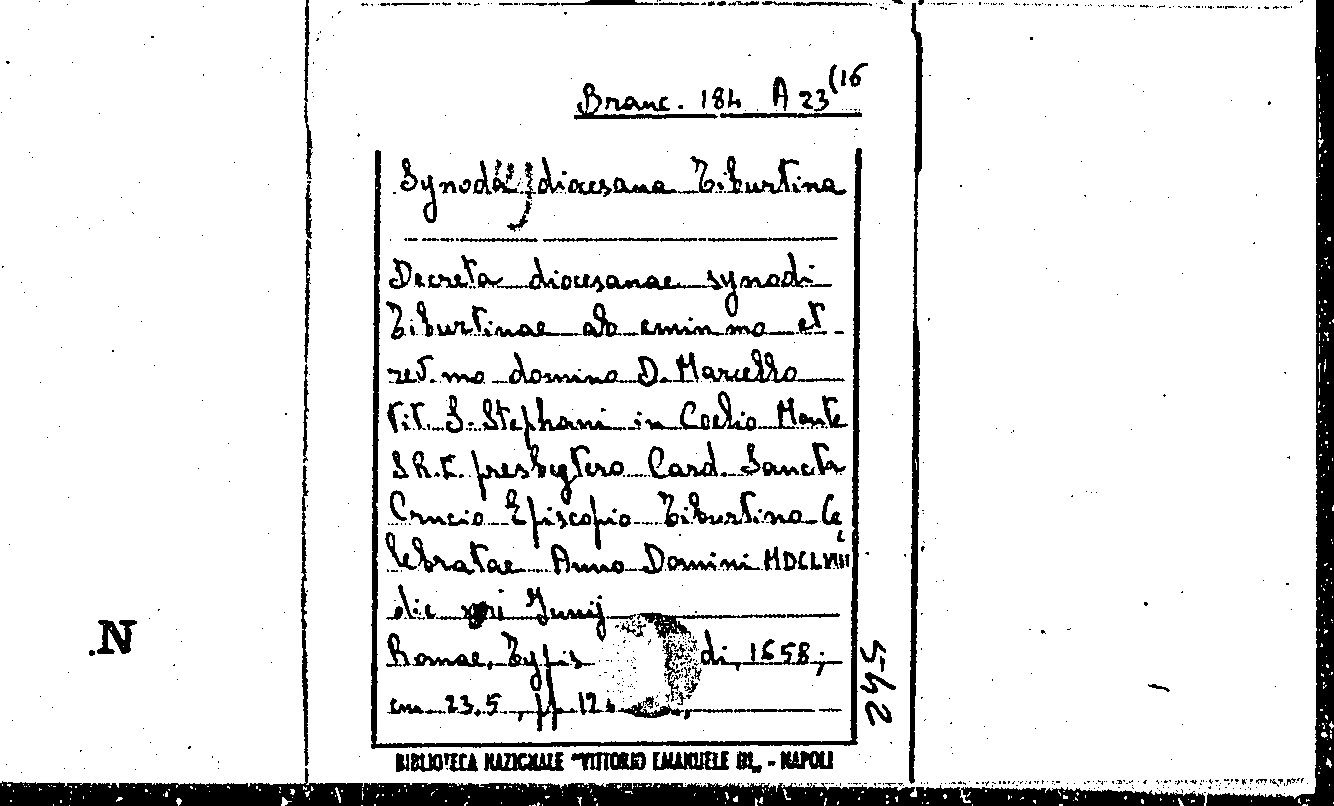 Branc. 184 A 23 (16
Synoda diocesana Tiburtina
Decreta diocesanae synodi
Tiburtinae ab emin mo et
rev. mo domino D. Marcello
tit. S. Stephani in Coelio Monte
S.R.E. presbytero Card. Sancta
Crucio Episcopio Tiburtino Ce
lebratae Anno Domini MDCLVIII
die Junij
Romae, Typis di, 1658;
cm 23,5, pp. 12
BIBLIOTECA NAZIONALE "VITTORIO EMANUELE III„ - NAPOLI
542
N.